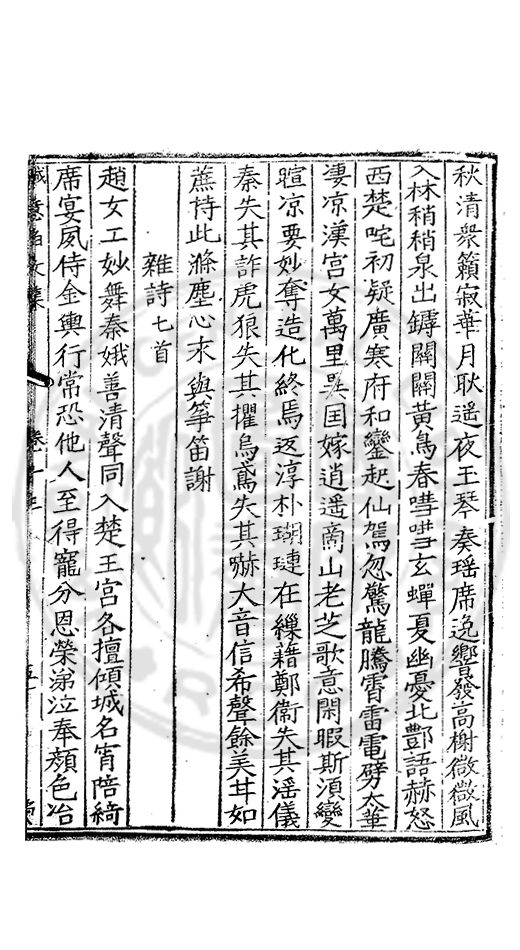 秋清衆籟寂華月耿遥夜王琴奏瑶席逸響發高榭微微風
入林稍稍泉出鏬關關黃鳥春嘒嘒玄蟬夏幽憂北酆語赫怒
西楚咤初疑廣寒府和鑾起仙駕忽驚龍騰霄雷電劈太華
凄凉漢宫女萬里異囯嫁逍遥商山老芝歌意閑暇斯湏變
暄凉要妙奪造化終焉返淳朴瑚璉在繅藉鄭衞失其滛儀
秦失其詐虎狼失其攫烏鳶失其嚇大音信希聲餘美甘如
蔗恃此滌塵心末與箏笛謝
雜詩七首
趙女工妙舞秦娥善清聲同入楚王宫各擅傾城名宵陪綺
席宴夙侍金輿行常恐他人至得寵分恩榮涕泣奉顔色冶